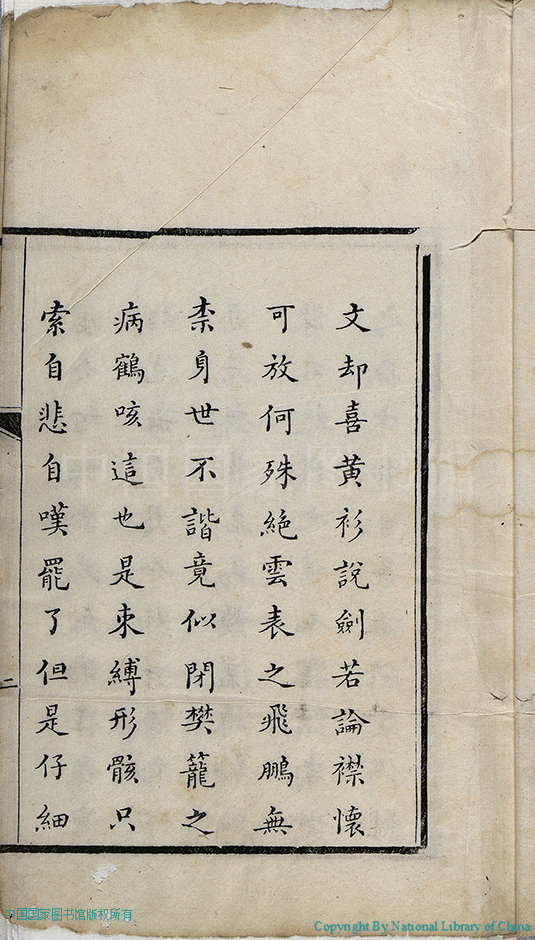 文却喜黄衫說劍若論襟懷
可放何殊絶雲表之飛鵬無
柰身世不諧竟似閉樊籠之
病鶴咳這也是束縛形骸只
索自悲自嘆罷了但是仔細
二
中国国家图书馆版权所有
Copyright By National Library of China